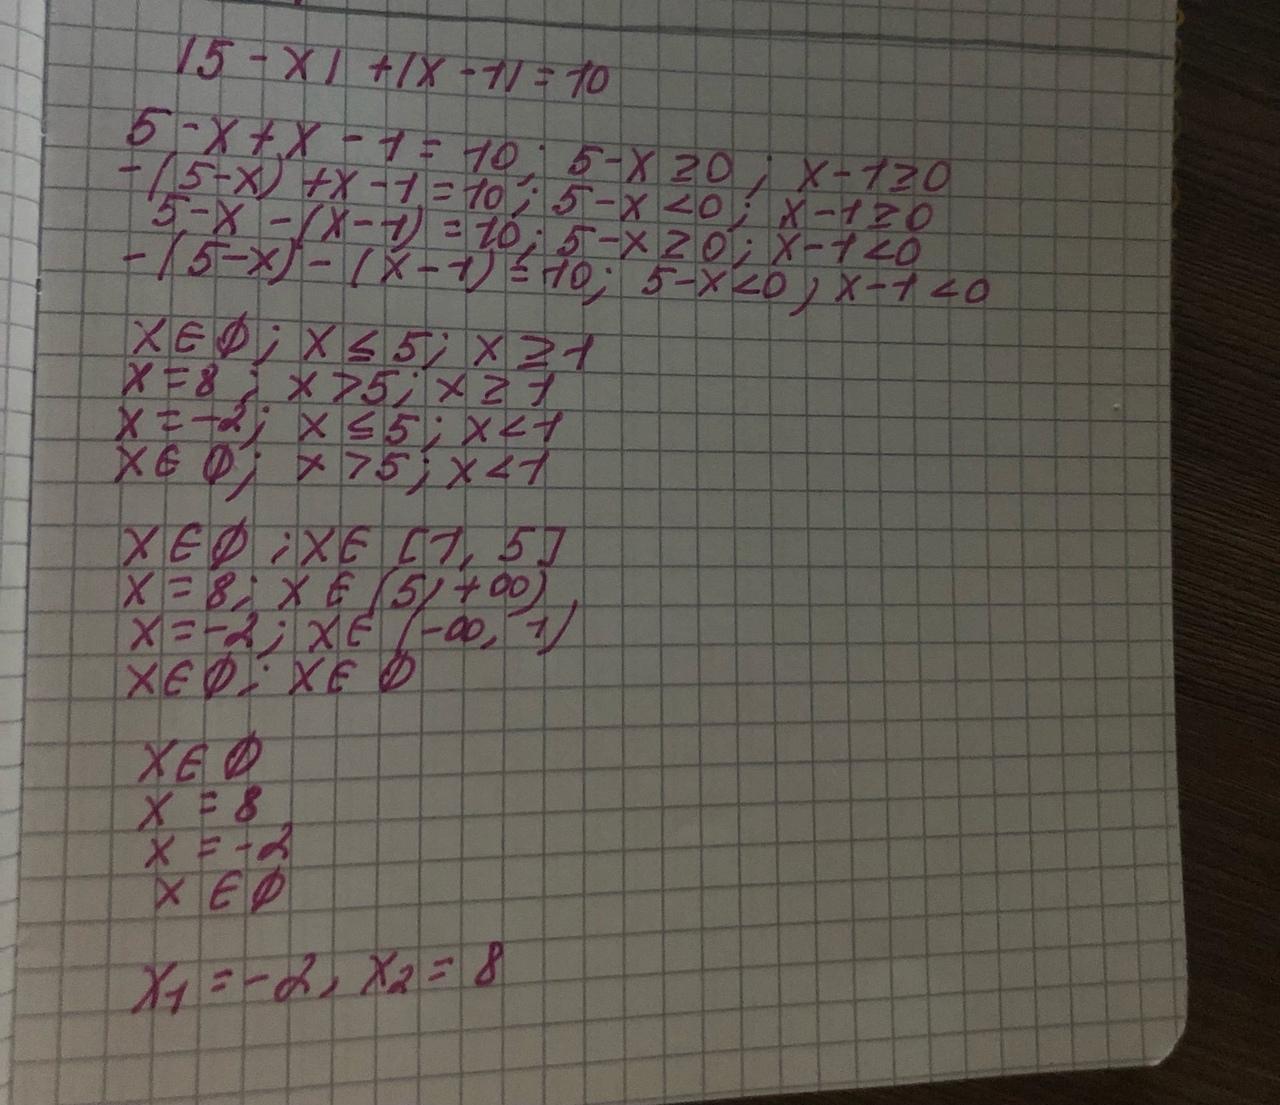 |5 - x| + |x - 1| = 10
5 - x + x - 1 = 10; 5 - x ≥ 0; x - 1 ≥ 0
-(5 - x) + x - 1 = 10; 5 - x < 0; x - 1 ≥ 0
5 - x - (x - 1) = 10; 5 - x ≥ 0; x - 1 < 0
-(5 - x) - (x - 1) = 10; 5 - x < 0; x - 1 < 0
x ∈ ∅; x ≤ 5; x ≥ 1
x = 8; x > 5; x ≥ 1
x = -2; x ≤ 5; x < 1
x ∈ ∅; x > 5; x < 1
x ∈ ∅; x ∈ [1, 5]
x = 8; x ∈ (5, +∞)
x = -2; x ∈ (-∞, 1)
x ∈ ∅; x ∈ ∅
x ∈ ∅
x = 8
x = -2
x ∈ ∅
x₁ = -2, x₂ = 8